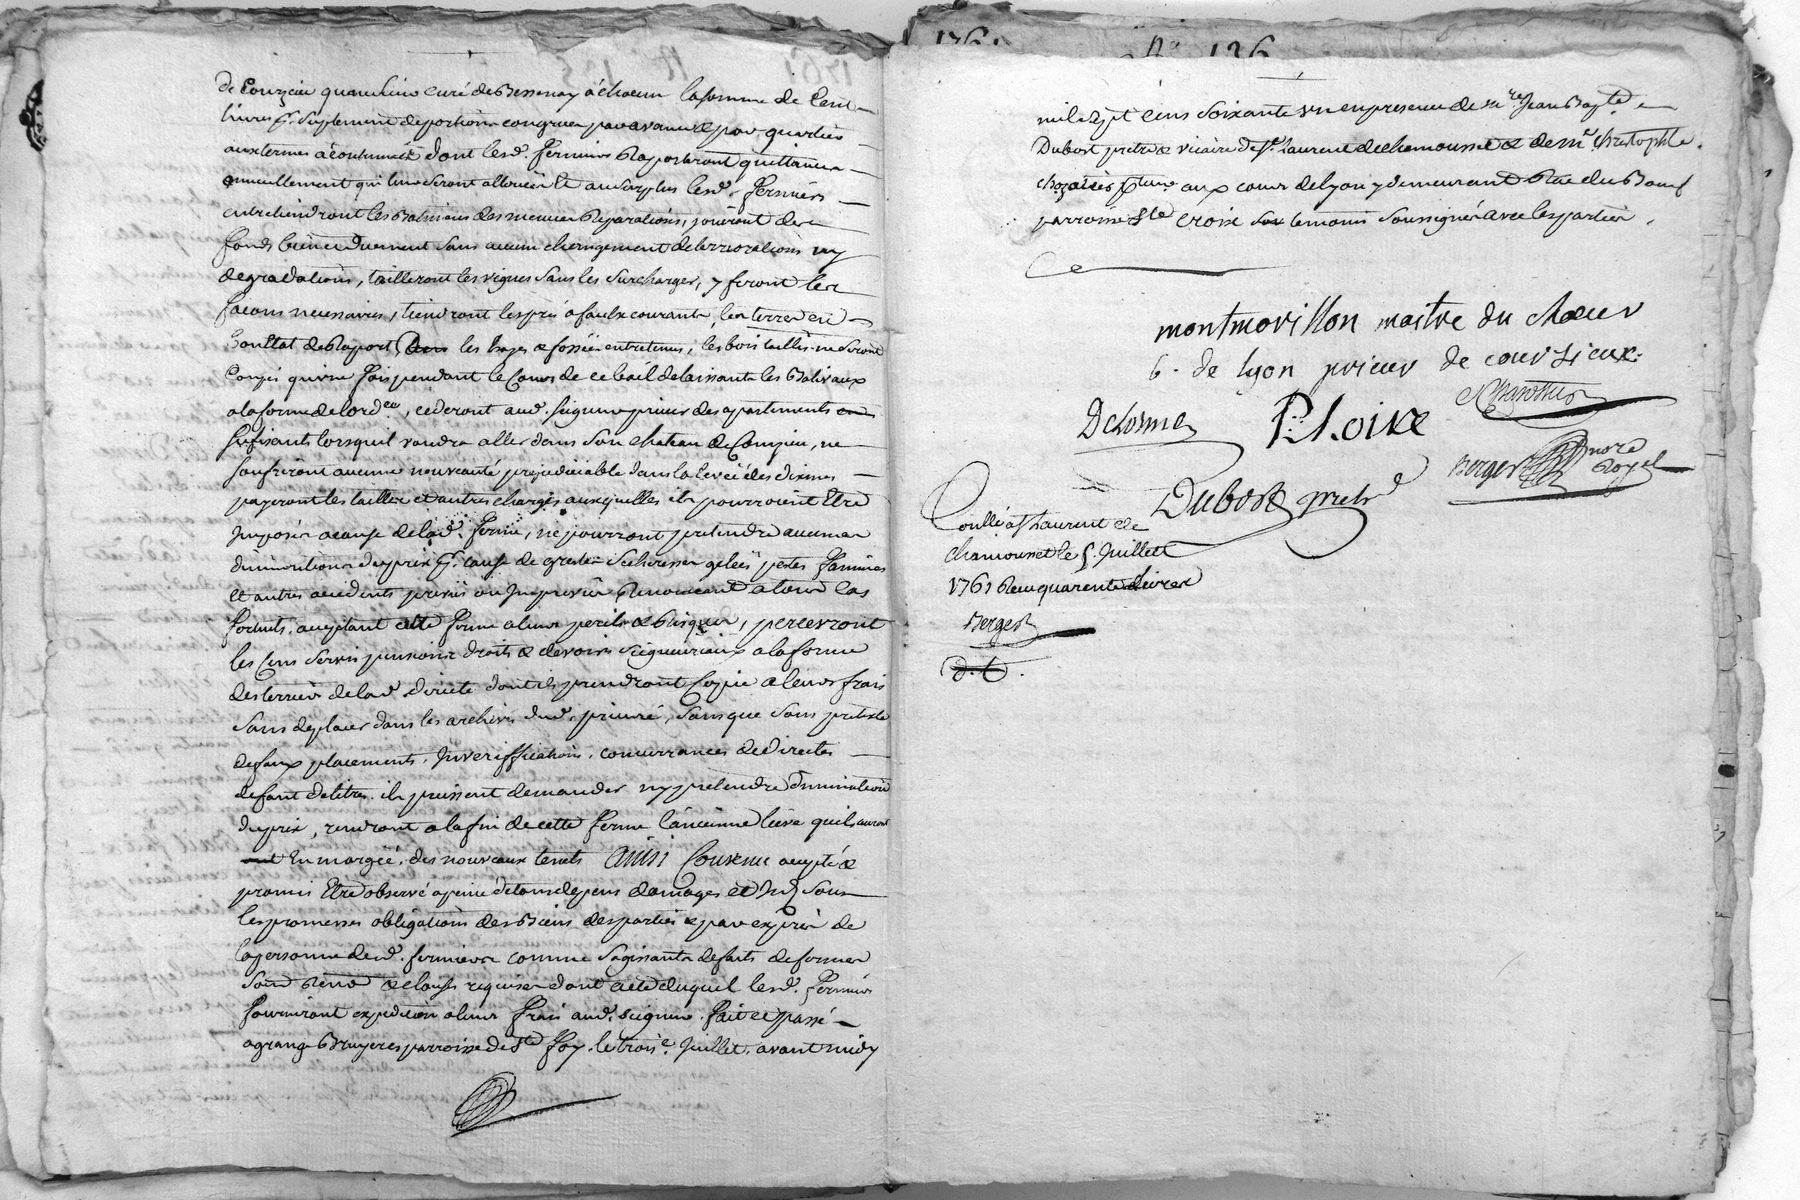 de Courzieu quau Sieur curé de Bessenay a chacun la somme de Cent
livres pr. suplement de portion congrue par avance & par quartier
aux termes acoutumés dont lesd. fermiers raporteront quittance
annuellement qui leur seront allouées le ausurplus lesd. fermiers
entretiendront les Batimens des menues Reparations, jouiront des
fonds bien et duement sans aucun changement deterriorations ny
degradations, tailleront les vignes sans les surcharger, y feront les
façons necessaires, tiendront les prés a faulx courante, les terres en
bon Etat de Raport les hayes & fossés entretenus, les bois taillis ne seront
Coupés qu'une fois pendant le Cours de ce bail delaissants les Balivaux
a la forme de lord.ce, cederont aud. seigneur prieur des apartements
sufisants lorsquil voudra aller dans son chateau de Courzieu, ne
soufriront aucune nouveauté prejudiciable dans la levée des dixmes
payeront les tailles et autres charges auxquelles ils pourroient Etre
Imposés acause de lad. ferme, ne pourront pretendre aucune
diminution du prix pr. cause de gresles secheresses gelées pestes famines
et autres accidents prévus ou Imprevûs Renonceant a tous cas
fortuits, acceptant cette ferme a leurs perils & Risques, percevront
les Cens servis pensions droits & devoirs seigneuriaux a la forme
des terriers de lad. directe dont ils prendront Copie a leurs frais
sans deplacer dans les archives dud. prieuré, sans que sous pretexte
de faux placements, Inveriffications, concurrances de directes
defaut de titres ils puissent demander ny pretendre diminution
du prix, rendront a la fin de cette ferme l'ancienne lieve quils auront
En margée des nouveaux tenets Ainsi Convenu accepté &
promis Etre observé a peine de tous depens domages et Int. sous
les promesses obligations des Biens des parties & par exprès de
la personne desd. fermiers comme sagissants de faits de fermes
soum. Renon. & clauses requises dont acte duquel lesd. fermiers
fourniront expedition a leurs frais aud. seigneur. fait et passé
a grange Bruyeres parroisse de Ste foy le trois.e Juillet, avant midy
mil sept cens soixante un en presence de m.re Jean Bapte.
Dubost pretre & vicaire de St. Laurent de chamousset & de mr. Christophle
aux cours de lyon y demeurant Rue du Boeuf
parroisse Ste Croix temoins soussignés avec les parties.
montmorillon maitre du choeur
6. de lyon prieur de coursieux
Delorme P. Loire
Berger nore Royal
Dubost pretre
Conllé a St Laurent de
chamousset le 5. Juillet
1761 Recu quarente livres
Berger